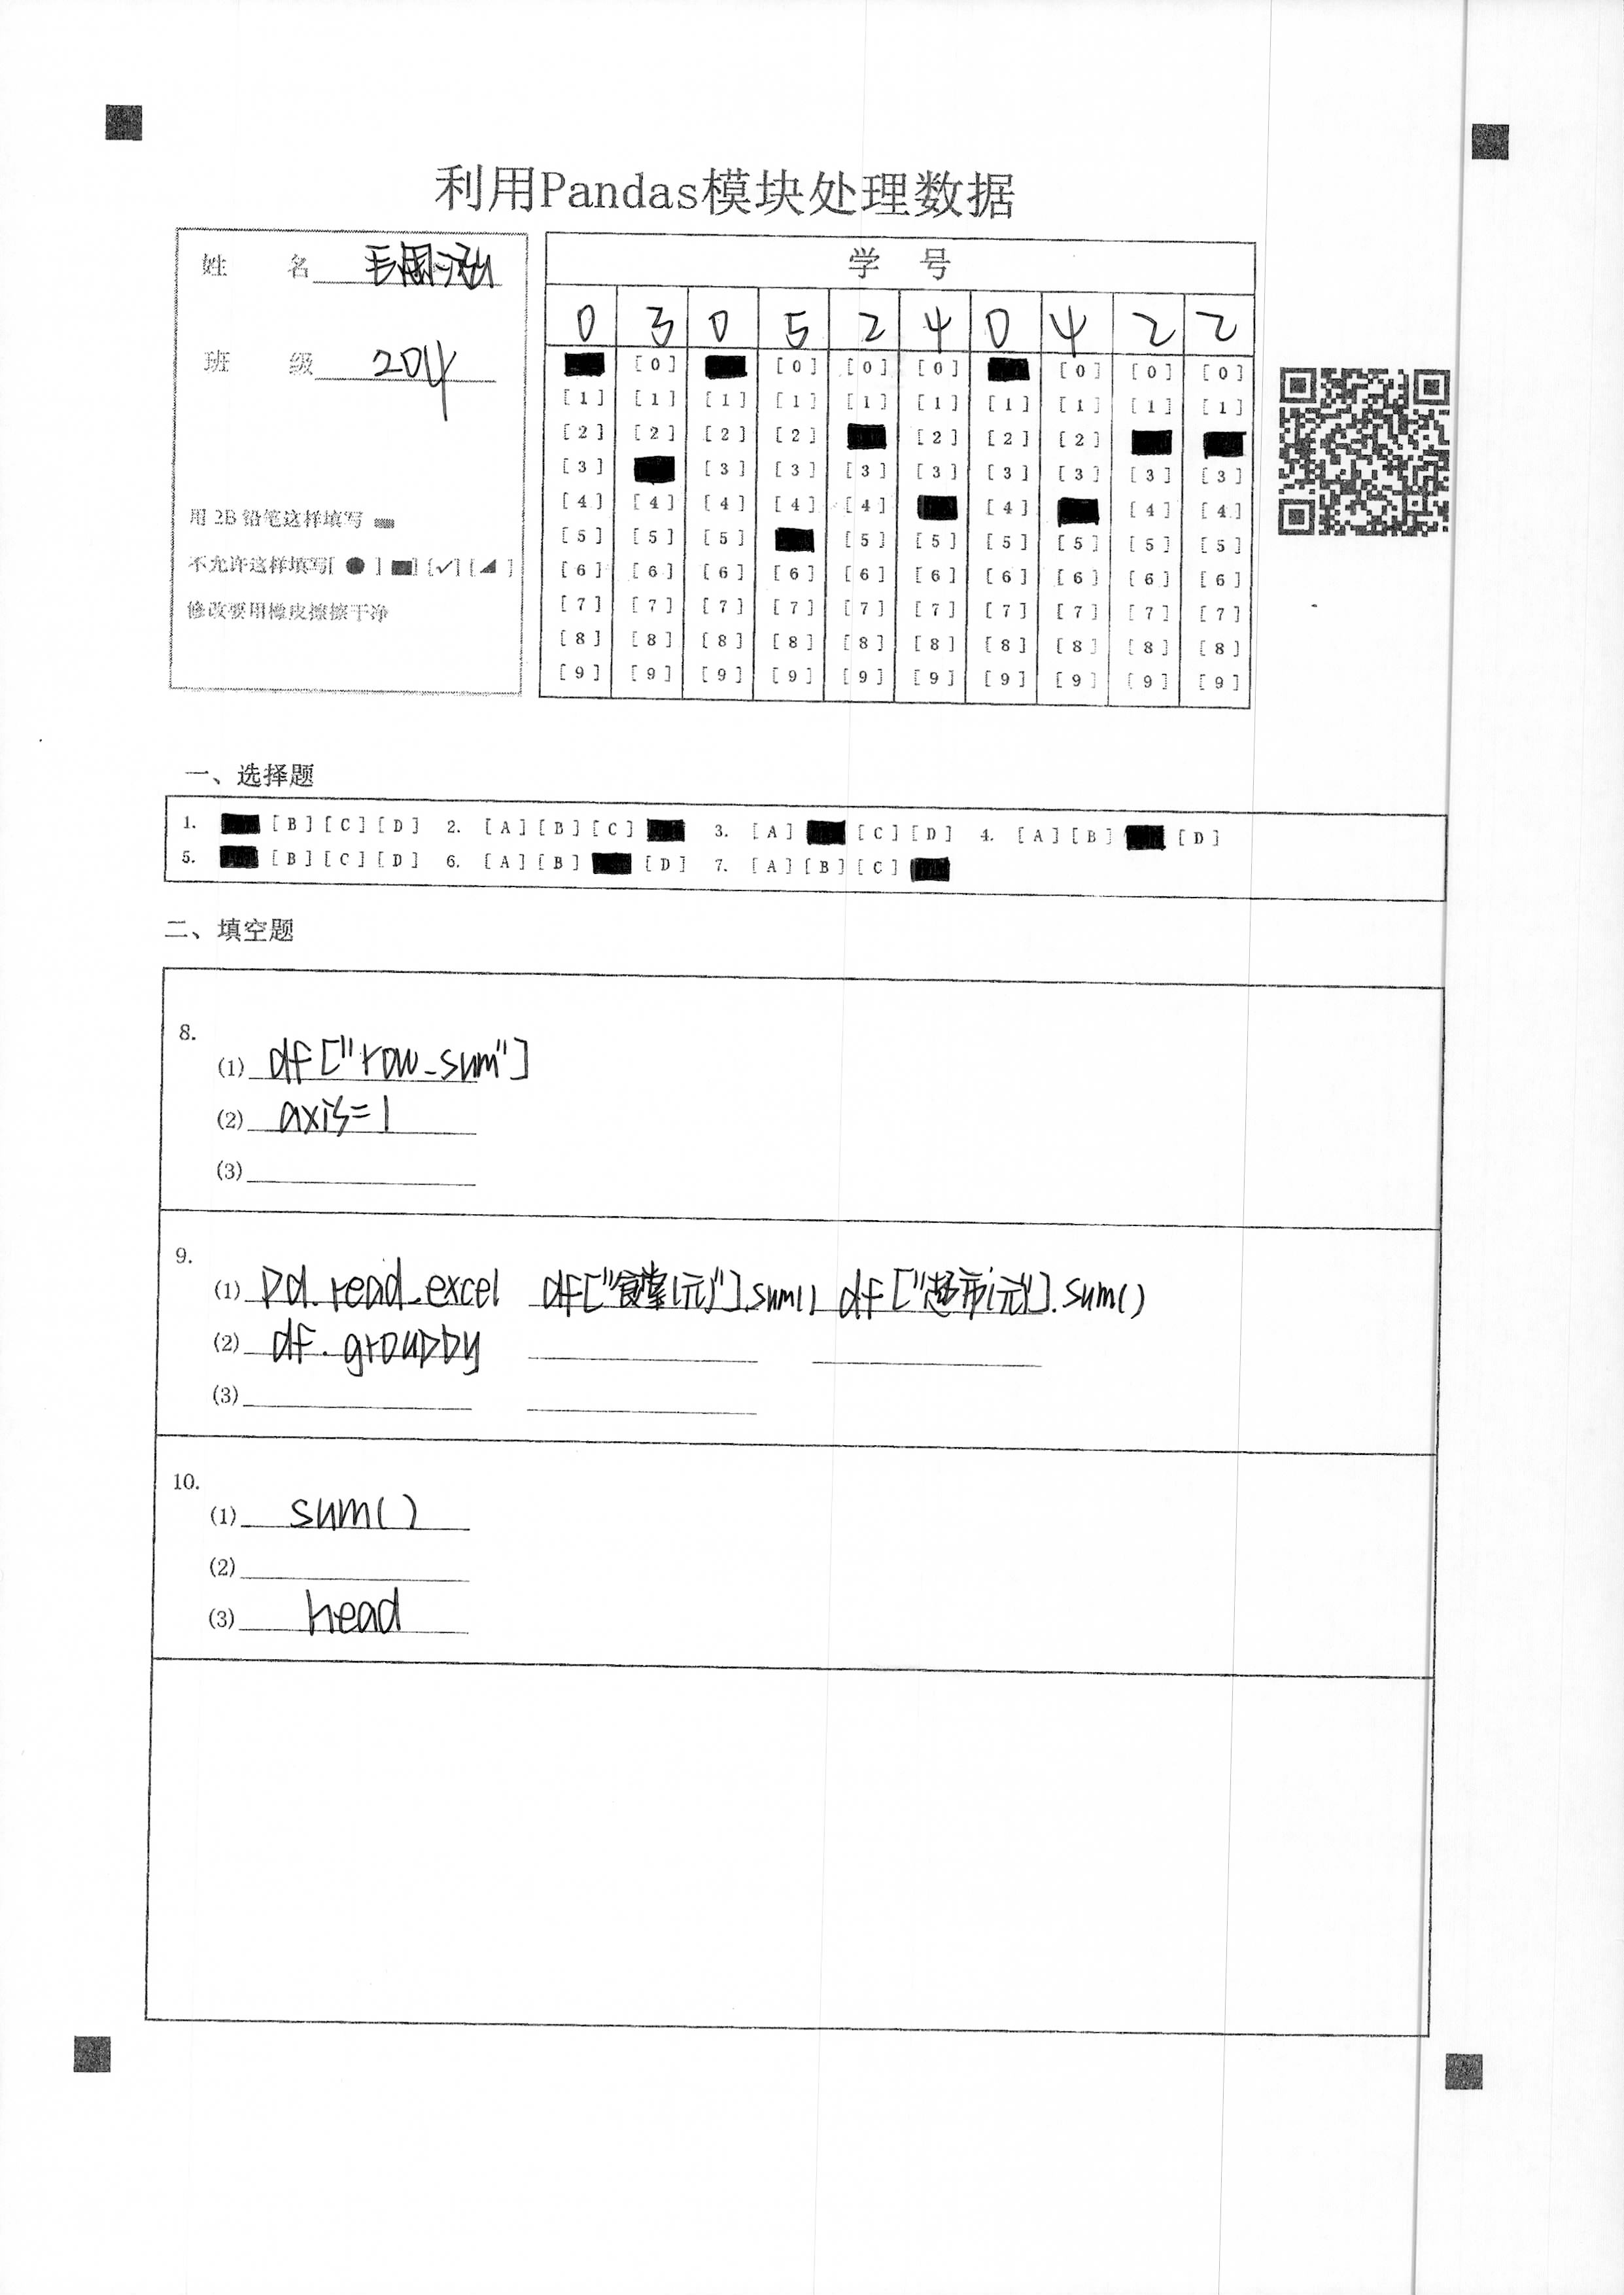 利用Pandas模块处理数据
姓 名
班 级 204
用 2B 铅笔这样填写
不允许这样填写[ ● ] [■] [✓] [◢ ]
修改要用橡皮擦擦干净
学 号
0 3 0 5 2 4 0 4 2 2
[0] [0] [0] [0] [0] [0] [0]
[1] [1] [1] [1] [1] [1] [1] [1] [1] [1]
[2] [2] [2] [2] [2] [2] [2]
[3] [3] [3] [3] [3] [3] [3] [3] [3]
[4] [4] [4] [4] [4] [4] [4] [4]
[5] [5] [5] [5] [5] [5] [5] [5] [5]
[6] [6] [6] [6] [6] [6] [6] [6] [6] [6]
[7] [7] [7] [7] [7] [7] [7] [7] [7] [7]
[8] [8] [8] [8] [8] [8] [8] [8] [8] [8]
[9] [9] [9] [9] [9] [9] [9] [9] [9] [9]
一、选择题
1. [B] [C] [D] 2. [A] [B] [C] 3. [A] [C] [D] 4. [A] [B] [D]
5. [B] [C] [D] 6. [A] [B] [D] 7. [A] [B] [C]
二、填空题
8.
(1) df["row_sum"]
(2) axis=1
(3)
9.
(1) pd.read_excel df["食堂(元)"].sum() df["超市(元)"].sum()
(2) df.groupby
(3)
10.
(1) sum()
(2)
(3) head